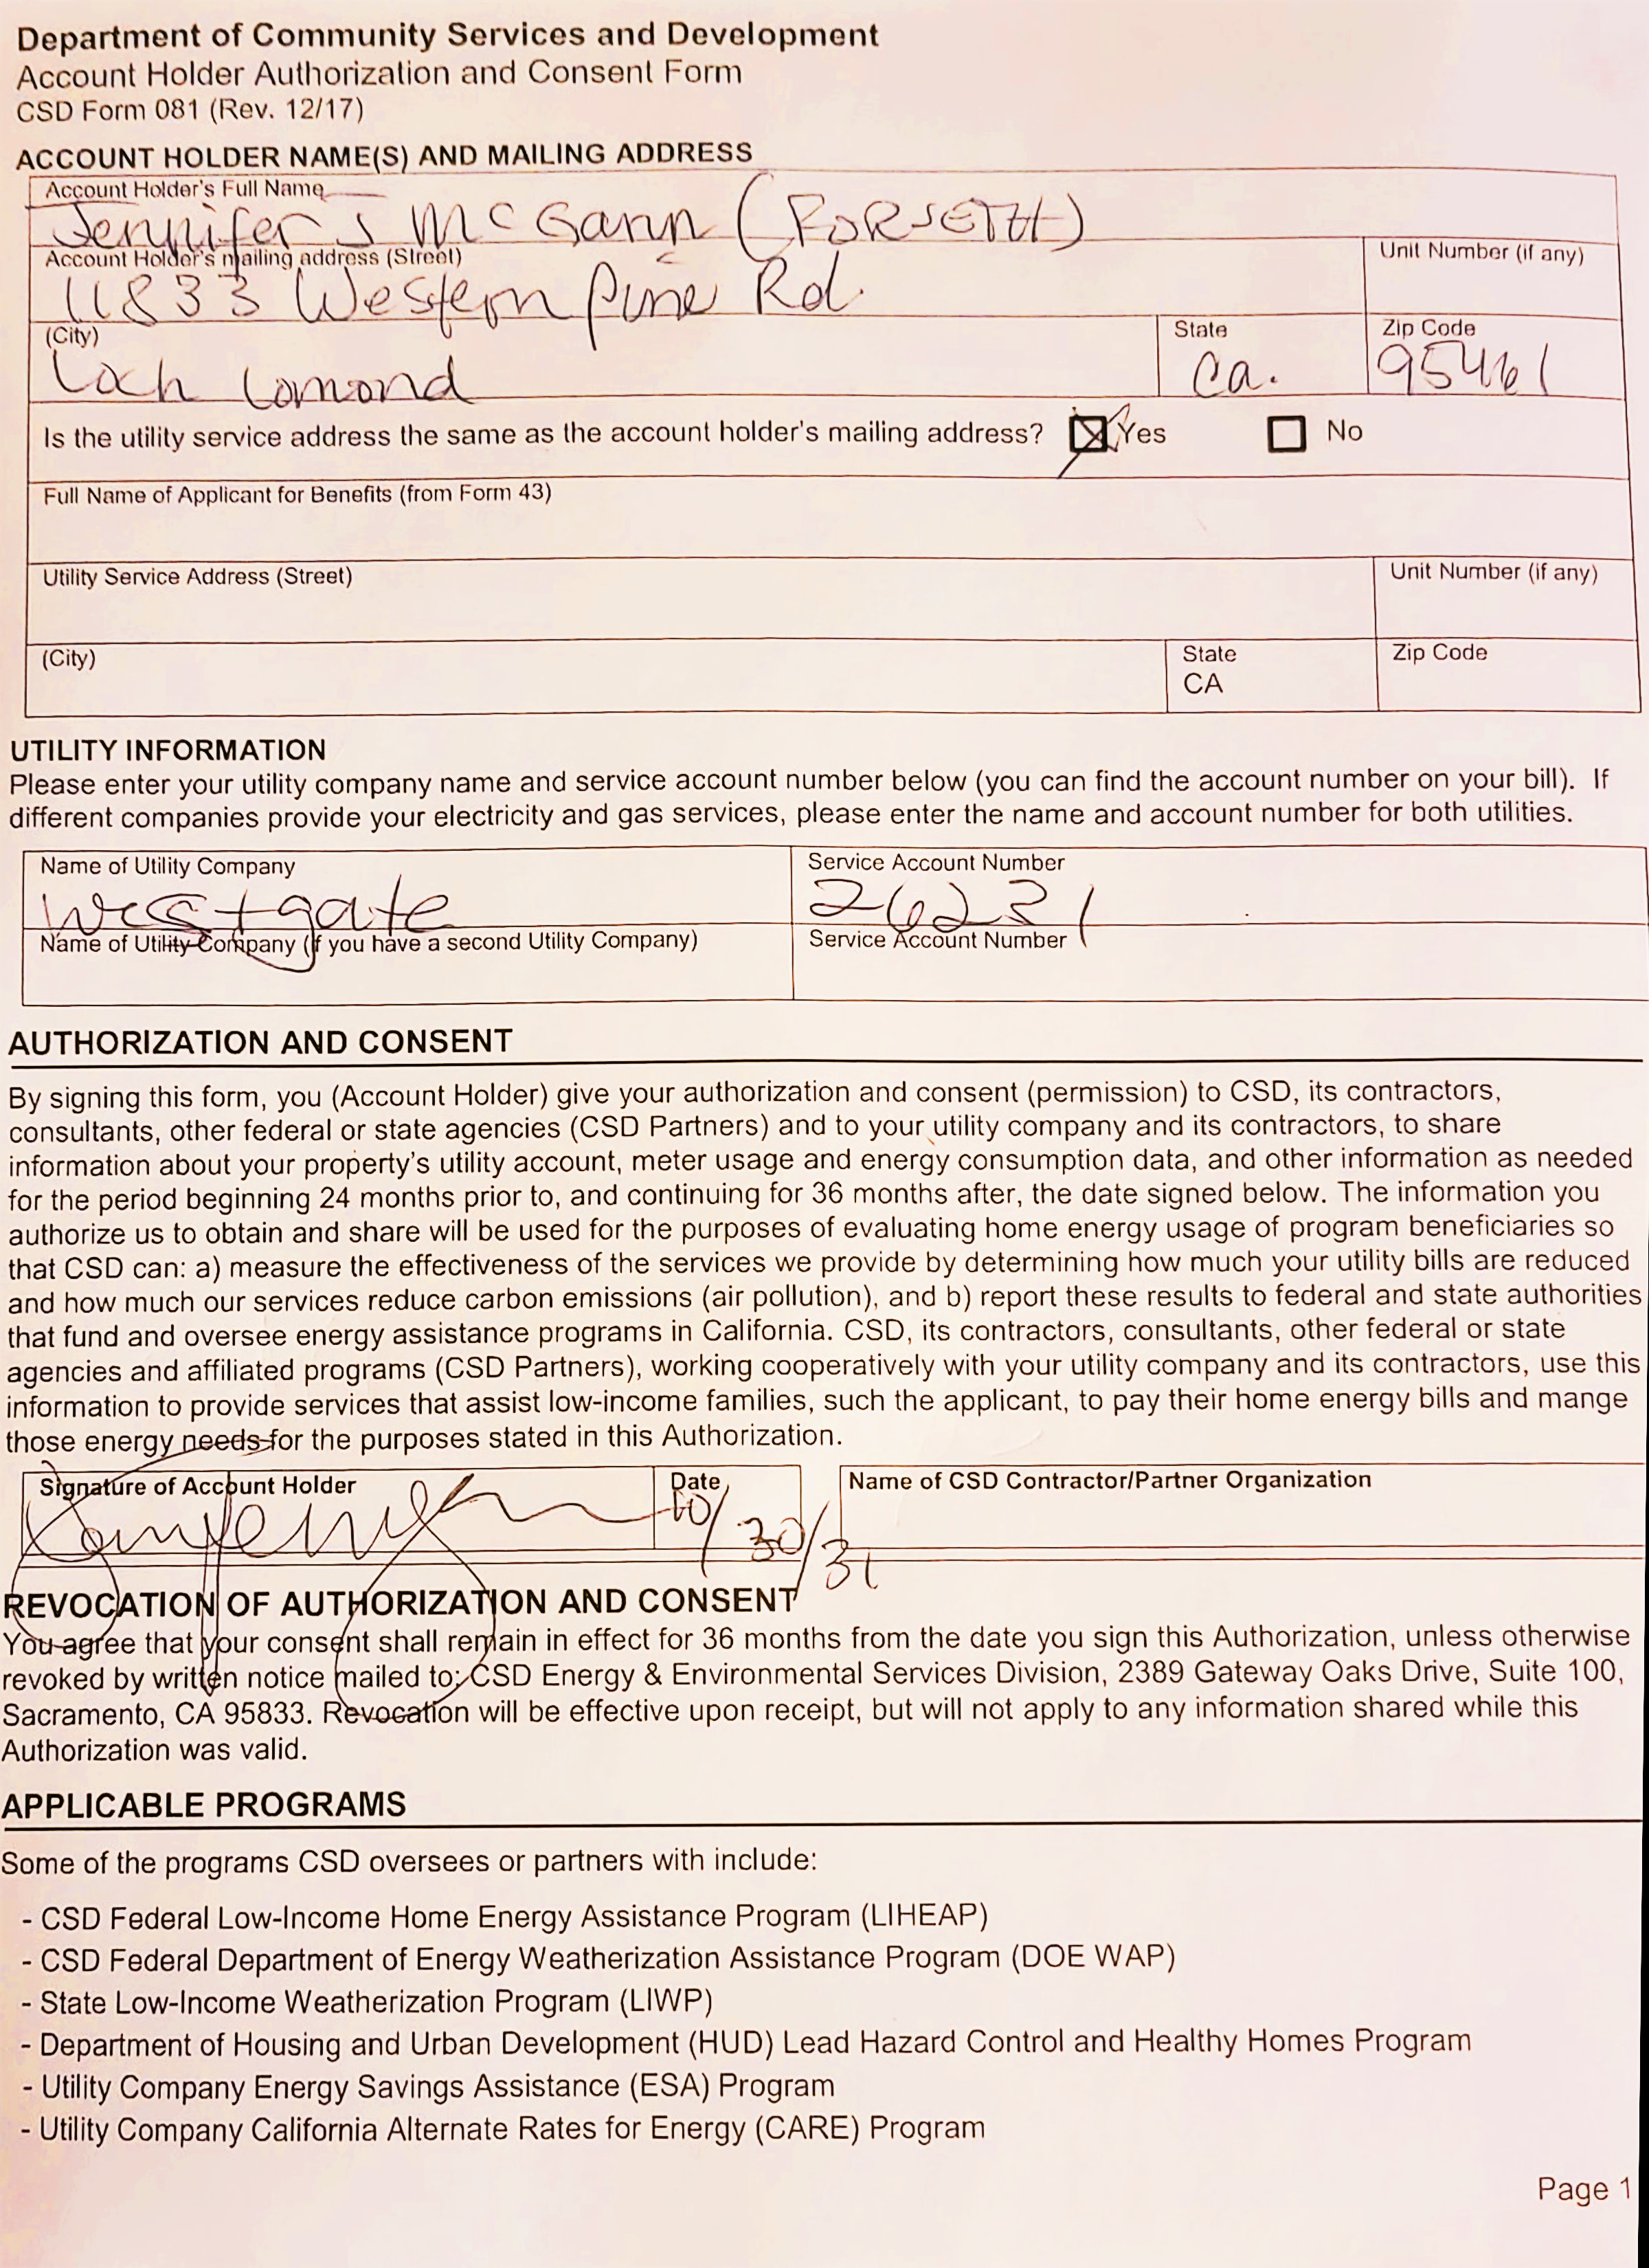 Department of Community Services and Development
Account Holder Authorization and Consent Form
CSD Form 081 (Rev. 12/17)
ACCOUNT HOLDER NAME(S) AND MAILING ADDRESS
Account Holder's Full Name
Jennifer J McGann (FORSETH)
Account Holder's mailing address (Street)
11833 Western Pine Rd.
Unit Number (if any)
(City)
Loch Lomond
State
Ca.
Zip Code
95461
Is the utility service address the same as the account holder's mailing address? ☒ Yes ☐ No
Full Name of Applicant for Benefits (from Form 43)
Utility Service Address (Street)
Unit Number (if any)
(City)
State
CA
Zip Code
UTILITY INFORMATION
Please enter your utility company name and service account number below (you can find the account number on your bill). If
different companies provide your electricity and gas services, please enter the name and account number for both utilities.
Name of Utility Company
Westgate
Service Account Number
26231
Name of Utility Company (if you have a second Utility Company)
Service Account Number
AUTHORIZATION AND CONSENT
By signing this form, you (Account Holder) give your authorization and consent (permission) to CSD, its contractors,
consultants, other federal or state agencies (CSD Partners) and to your utility company and its contractors, to share
information about your property's utility account, meter usage and energy consumption data, and other information as needed
for the period beginning 24 months prior to, and continuing for 36 months after, the date signed below. The information you
authorize us to obtain and share will be used for the purposes of evaluating home energy usage of program beneficiaries so
that CSD can: a) measure the effectiveness of the services we provide by determining how much your utility bills are reduced
and how much our services reduce carbon emissions (air pollution), and b) report these results to federal and state authorities
that fund and oversee energy assistance programs in California. CSD, its contractors, consultants, other federal or state
agencies and affiliated programs (CSD Partners), working cooperatively with your utility company and its contractors, use this
information to provide services that assist low-income families, such the applicant, to pay their home energy bills and mange
those energy needs for the purposes stated in this Authorization.
Signature of Account Holder
Date
10/30/31
Name of CSD Contractor/Partner Organization
REVOCATION OF AUTHORIZATION AND CONSENT
You agree that your consent shall remain in effect for 36 months from the date you sign this Authorization, unless otherwise
revoked by written notice mailed to: CSD Energy & Environmental Services Division, 2389 Gateway Oaks Drive, Suite 100,
Sacramento, CA 95833. Revocation will be effective upon receipt, but will not apply to any information shared while this
Authorization was valid.
APPLICABLE PROGRAMS
Some of the programs CSD oversees or partners with include:
- CSD Federal Low-Income Home Energy Assistance Program (LIHEAP)
- CSD Federal Department of Energy Weatherization Assistance Program (DOE WAP)
- State Low-Income Weatherization Program (LIWP)
- Department of Housing and Urban Development (HUD) Lead Hazard Control and Healthy Homes Program
- Utility Company Energy Savings Assistance (ESA) Program
- Utility Company California Alternate Rates for Energy (CARE) Program
Page 1